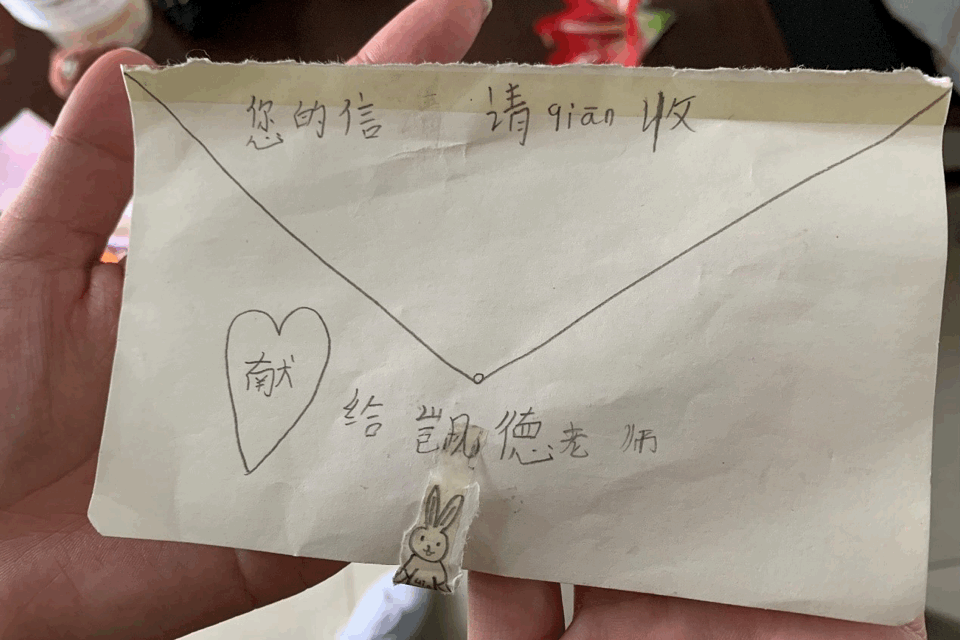 您的信 请 qiān 收
献
给凯德老师